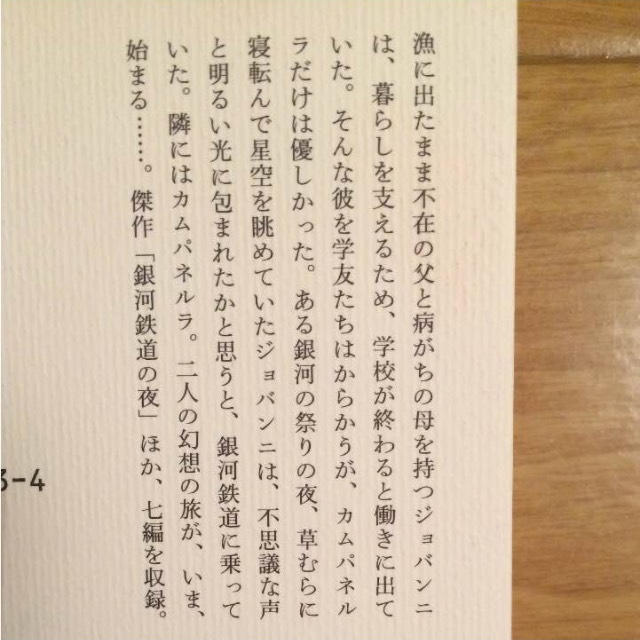 漁に出たまま不在の父と病がちの母を持つジョバンニ
は、暮らしを支えるため、学校が終わると働きに出て
いた。そんな彼を学友たちはからかうが、カムパネル
ラだけは優しかった。ある銀河の祭りの夜、草むらに
寝転んで星空を眺めていたジョバンニは、不思議な声
と明るい光に包まれたかと思うと、銀河鉄道に乗って
いた。隣にはカムパネルラ。二人の幻想の旅が、いま、
始まる……。傑作「銀河鉄道の夜」ほか、七編を収録。
3-4